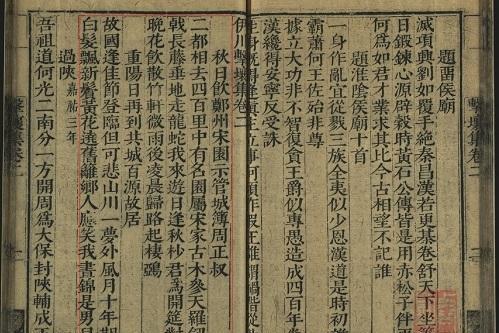 擊壤集卷二
題留侯廟
滅項興劉如覆手絶秦昌漢若更棊卷舒天下坐
日鍛鍊心源辟穀時黃石公傳皆是用赤松子伴
何為如君才業求其比今古相望不記誰
題淮陰侯廟十首
一身作亂宜從戮三族全夷似少恩漢道是時初
霸蕭何王佐殆非尊
據立大功非不智復貪王爵似專愚造成四百年
漢纔得安寧反受誅
生身既得逢真主立事何須作假王誰謂禍階從
伊川擊壤集卷二
秋日飲鄭州宋園示管城簿周正叔
二都相去四百里中有名園屬宋家古木參天羅劍
戟長藤垂地走龍蛇我來遊日逢秋杪君為開筵對
晚花飲散竹軒微雨後凌晨歸路起棲鴉
重陽日再到共城百源故居
故國逢佳節登臨但可悲山川一夢外風月十年期
白髮飄新鬢黃花遶舊籬鄉人應笑我晝錦是男
過陝 嘉祐三年
吾祖道何光二南分一方開周為大保封陝輔成王
擊壤集卷二